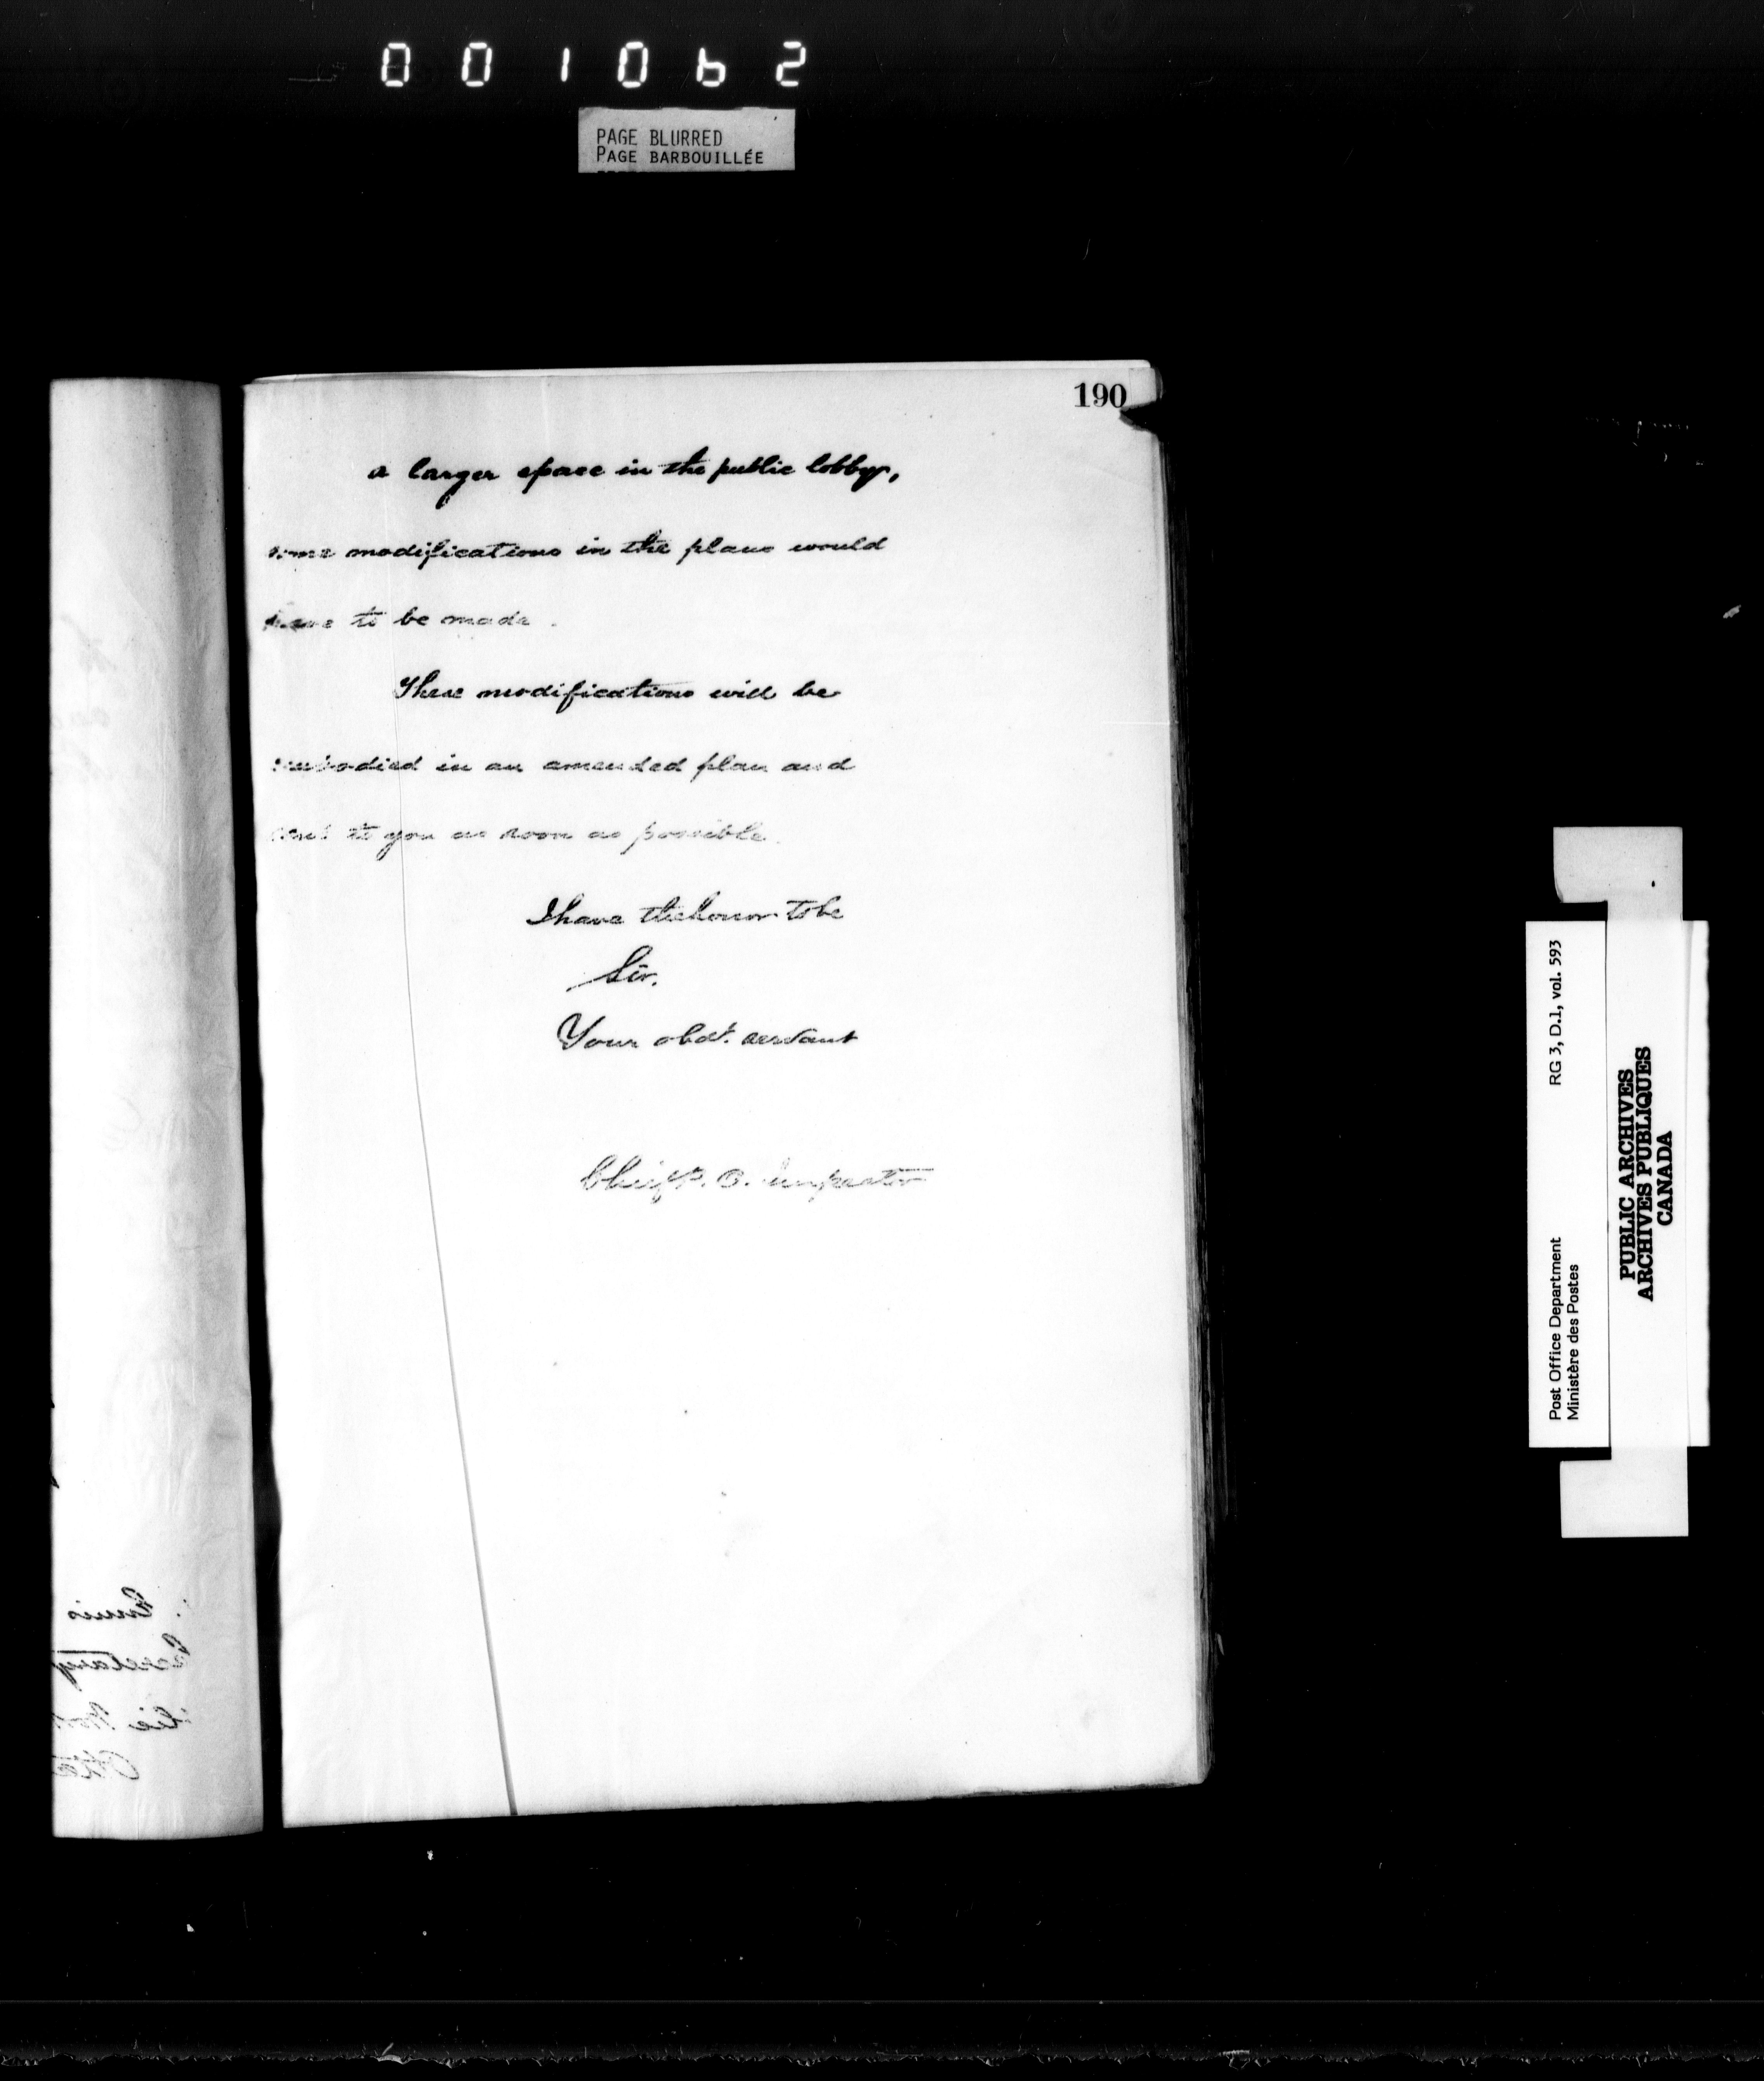 001062
PAGE BLURRED
PAGE BARBOUILLÉE
190
a larger space in the public lobby,
some modifications in the plans would
have to be made.
These modifications will be
embodied in an amended plan and
sent to you as soon as possible.
I have the honor to be
Sir,
Your obdt. servant
Chief P. O. Inspector
RG 3, D.1, vol. 593
Post Office Department
Ministère des Postes
PUBLIC ARCHIVES
ARCHIVES PUBLIQUES
CANADA